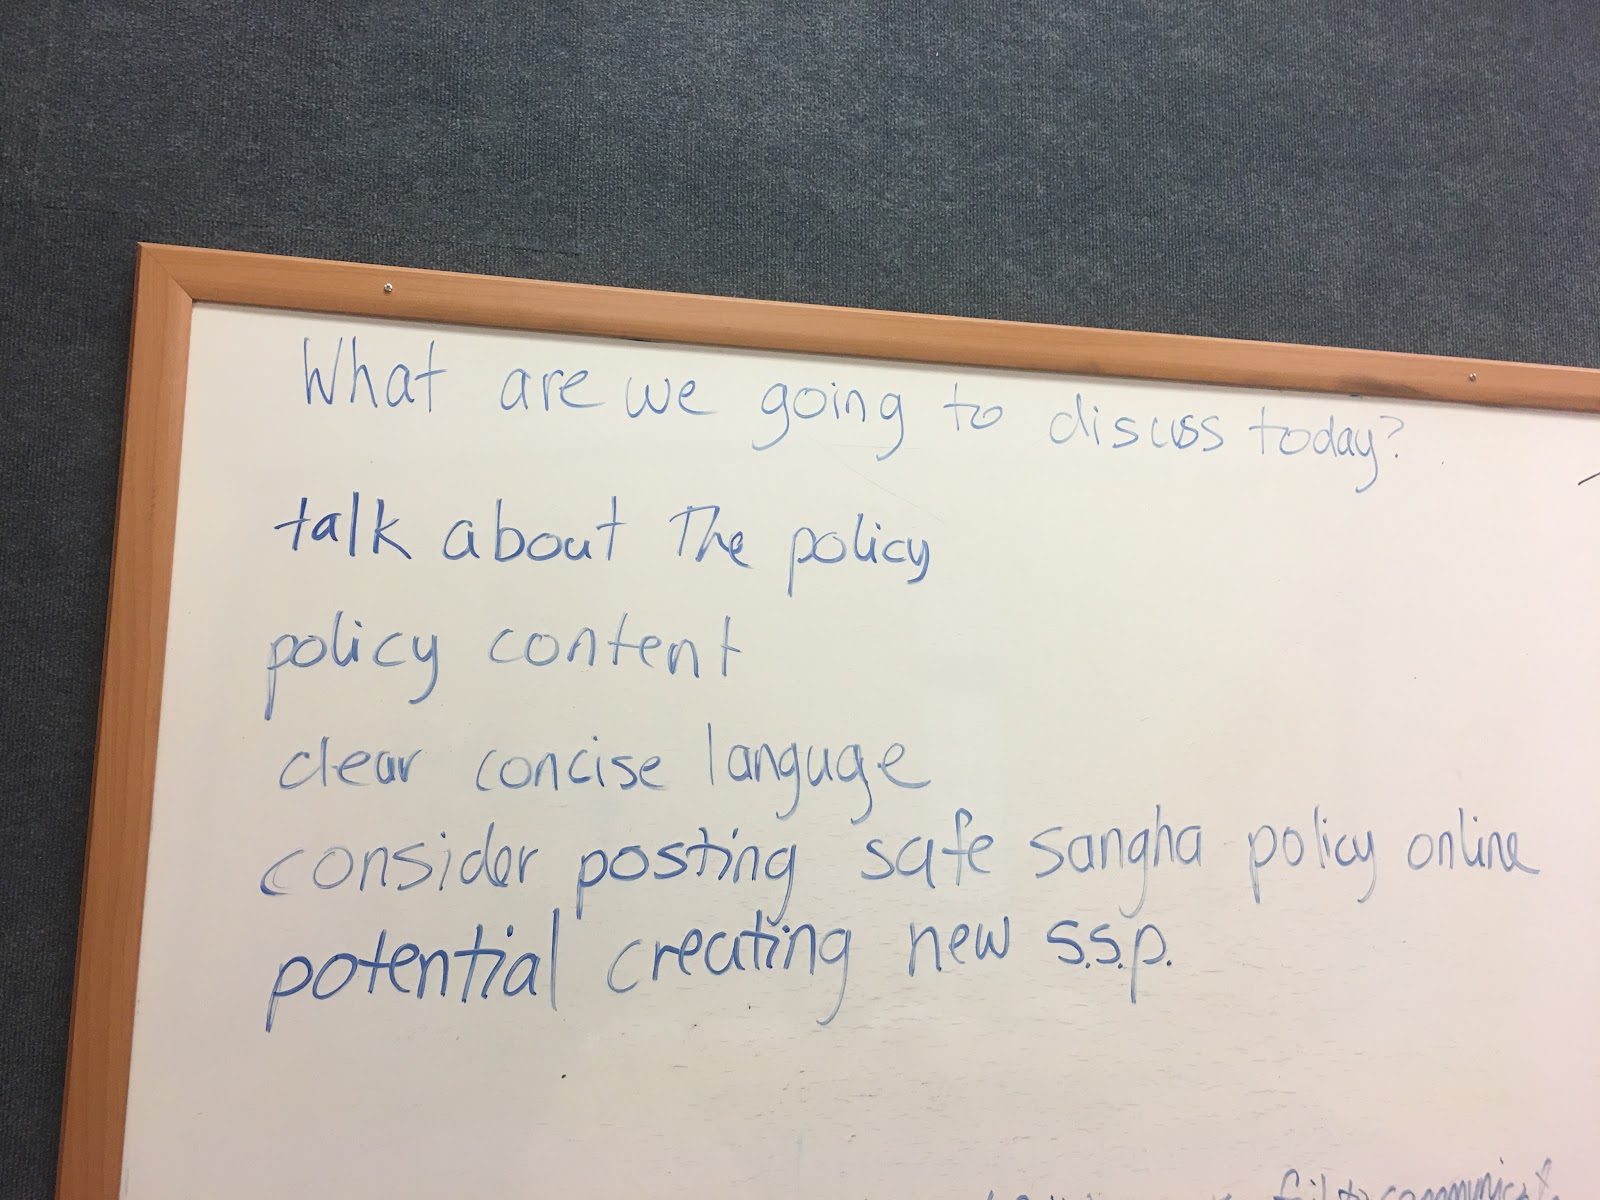 What are we going to discuss today?
talk about The policy
policy content
clear concise languge
consider posting safe sangha policy online
potential creating new s.s.p.